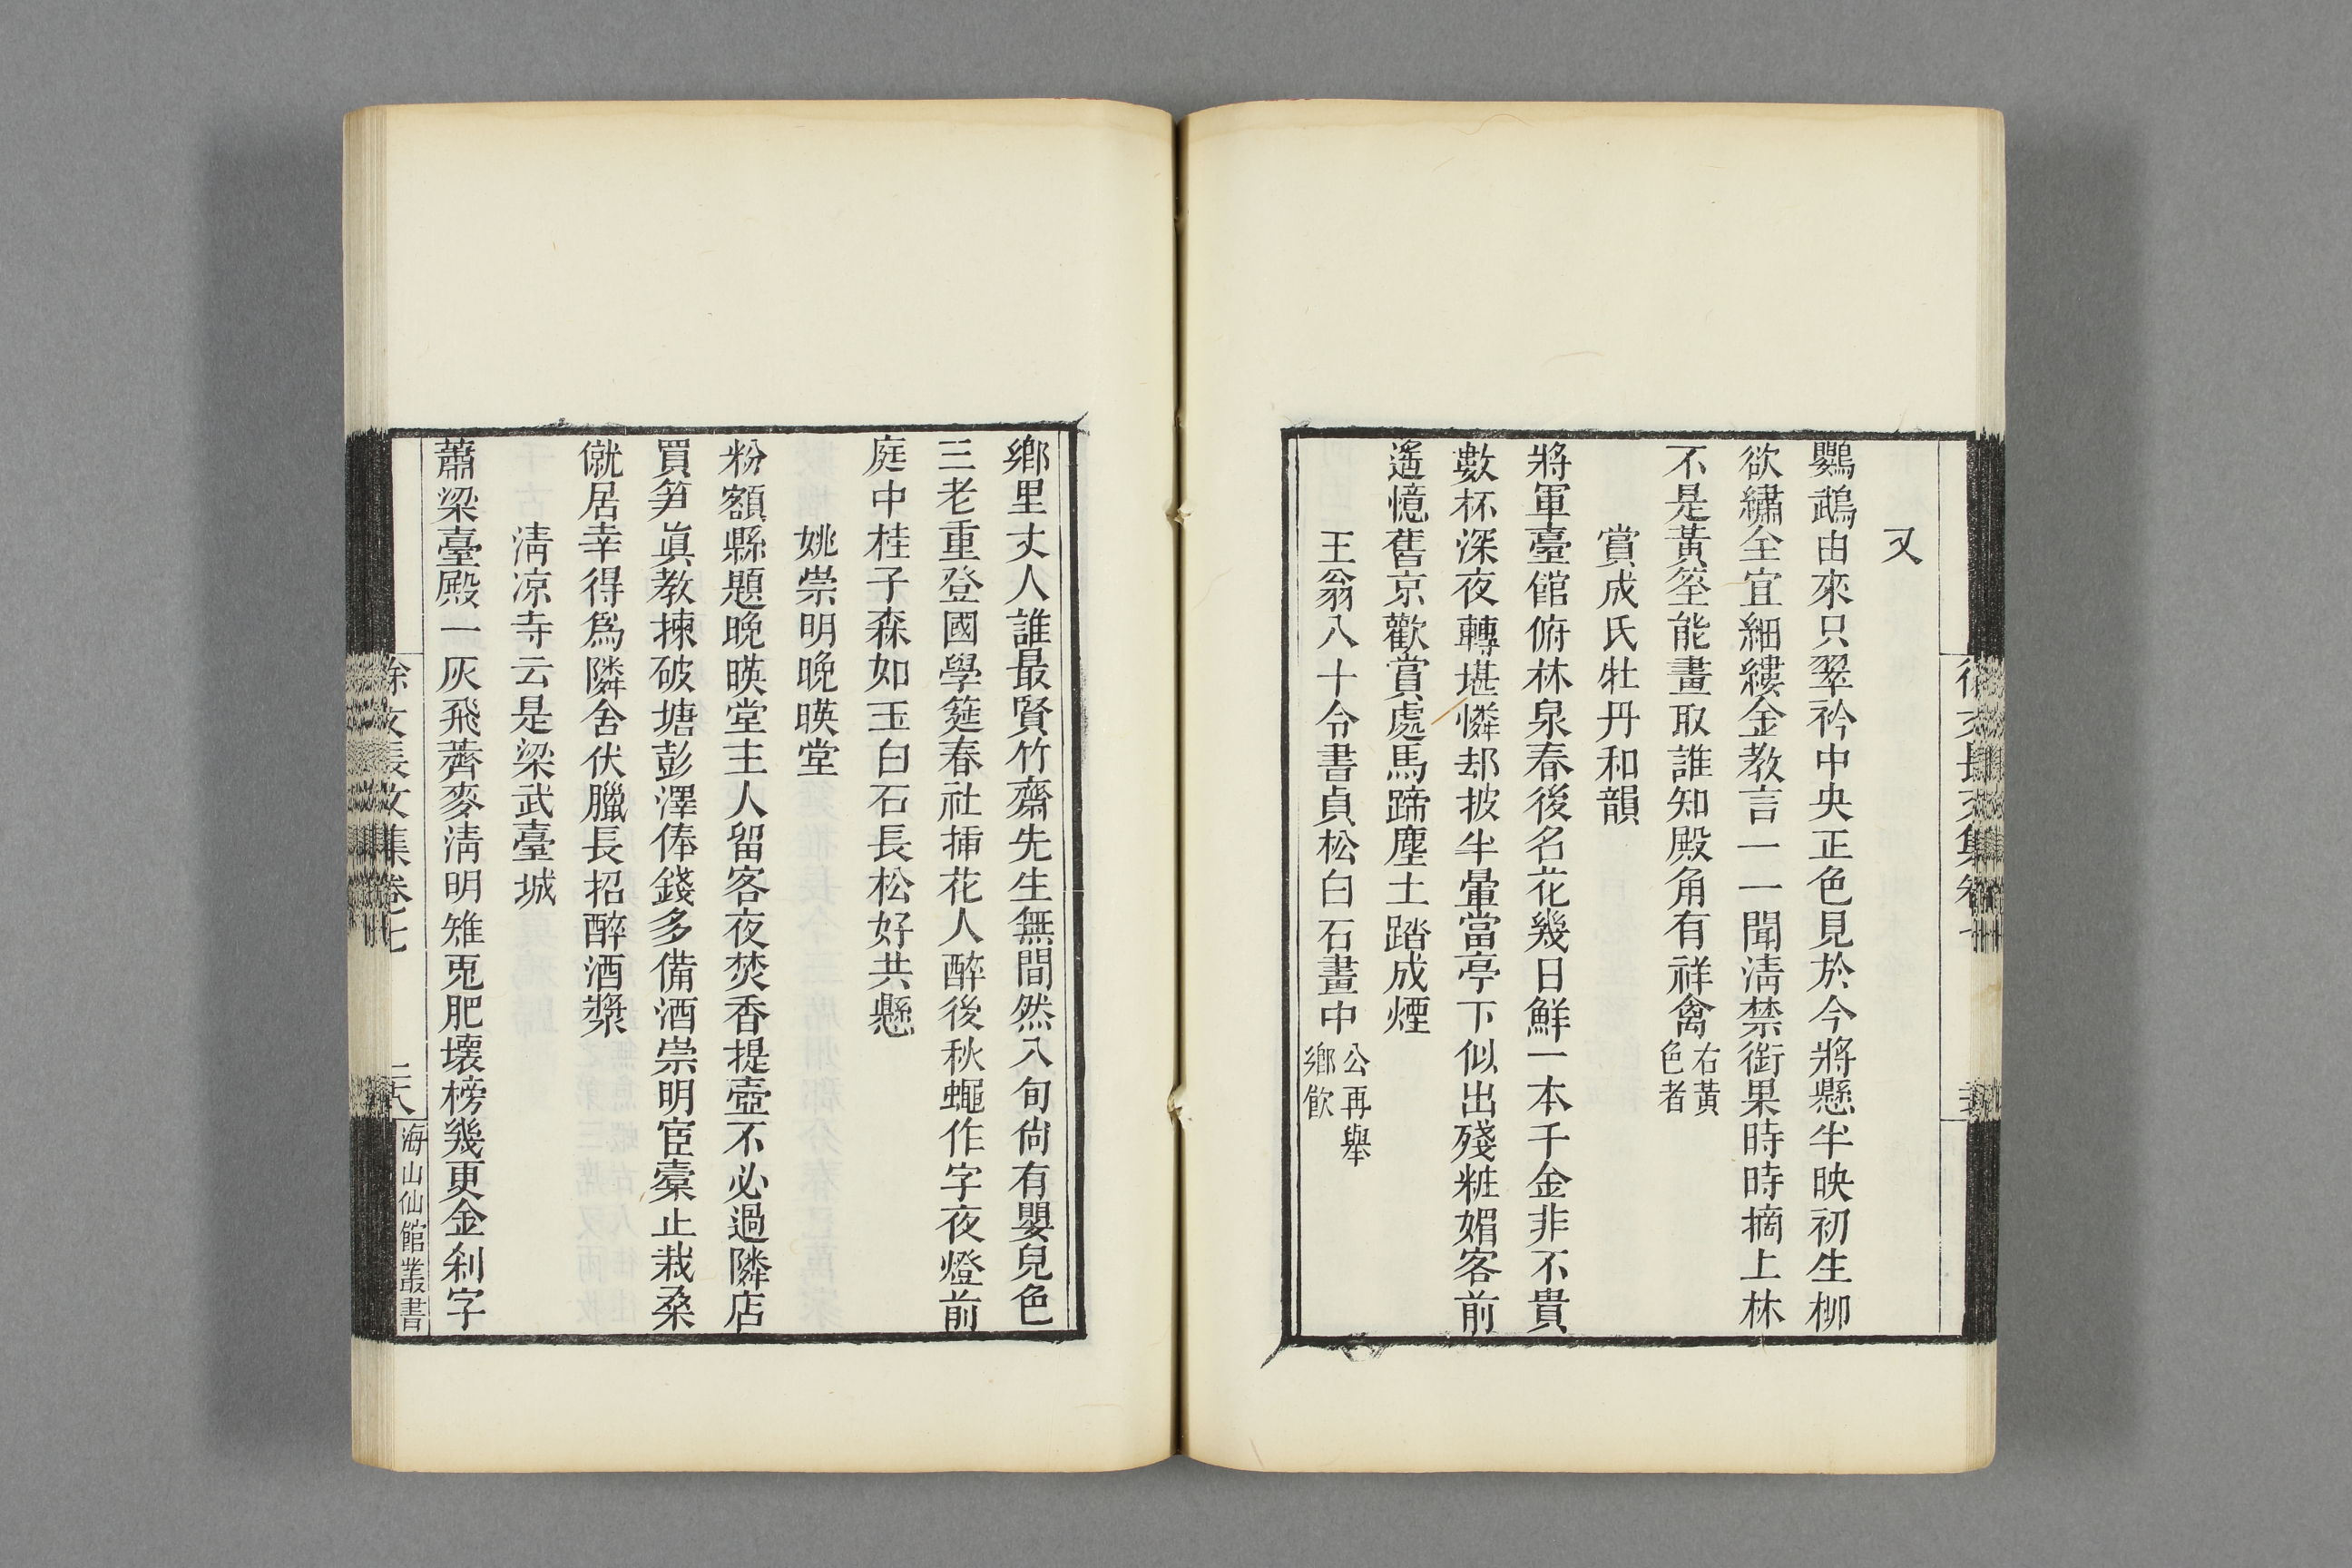 又
鸚鵡由來只翠衿中央正色見於今將懸半映初生柳
欲繡全宜細縷金教言一一聞淸禁銜果時時摘上林
不是黃筌能畫取誰知殿角有祥禽右黃色者
賞成氏牡丹和韻
將軍臺館俯林泉春後名花幾日鮮一本千金非不貴
數杯深夜轉堪憐却披半暈當亭下似出殘粧媚客前
遙憶舊京歡賞處馬蹄塵土踏成煙
王翁八十令書貞松白石畫中公再舉鄉飮
鄉里丈人誰最賢竹齋先生無間然八旬尙有嬰兒色
三老重登國學筵春社揷花人醉後秋蠅作字夜燈前
庭中桂子森如玉白石長松好共懸
姚崇明晚暎堂
粉額縣題晚暎堂主人留客夜焚香提壺不必過隣店
買笋眞教揀破塘彭澤俸錢多備酒崇明宦橐止栽桑
僦居幸得爲隣舍伏臘長招醉酒漿
淸凉寺云是梁武臺城
蕭梁臺殿一灰飛薺麥淸明雉兎肥壞榜幾更金刹字
徐文長文集卷七
二十八
海山仙館叢書